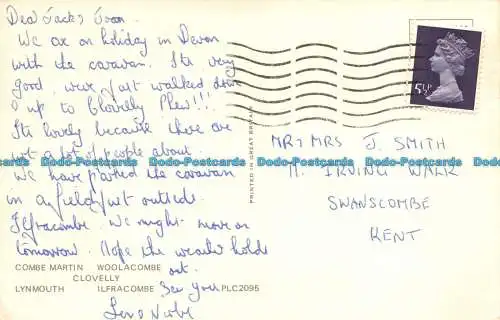 Dear Jack & Joan
We are on holiday in Devon
with the caravan. Its very
good, we've just walked down
& up to Clovelly Phew!!!
Its lovely because there are
not a lot of people about.
We have parked the caravan
in a field just outside
Ilfracombe. We might move on
tomorrow. Hope the weather holds
out.
See you
COMBE MARTIN WOOLACOMBE
CLOVELLY
LYNMOUTH ILFRACOMBE PLC2095
PRINTED IN GREAT BRITAIN
5½P
MR & MRS J. SMITH
11. IRVING WALK
SWANSCOMBE
KENT
Dodo-Postcards Dodo-Postcards Dodo-Postcards Dodo-Postcards Dodo-Postcards Dodo-Postcards